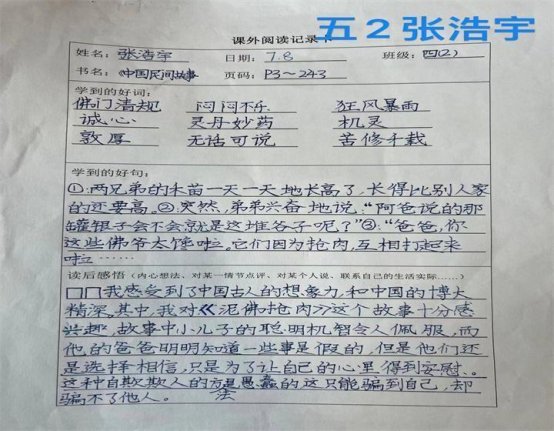 五2张浩宇
课外阅读记录卡
姓名：张浩宇 日期：7.8 班级：四(2)
书名：《中国民间故事》 页码：P3～243
学到的好词：
佛门清规 闷闷不乐 狂风暴雨
诚心 灵丹妙药 机灵
敦厚 无话可说 苦修千载
学到的好句：
①：两兄弟的禾苗一天一天地长高了，长得比别人家
的还要高。②：突然，弟弟兴奋地说：“阿爸说的那
罐银子会不会就是这堆谷子呢？”③：“爸爸，你
这些佛爷太馋啦，它们因为抢肉，互相打起来
啦……
读后感悟（内心想法、对某一情节点评、对某个人说、联系自己的生活实际……）
我感受到了中国古人的想象力，和中国的博大
精深，其中，我对《泥佛抢肉》这个故事十分感
兴趣，故事中小儿子的聪明机智令人佩服，而
他的爸爸明明知道一些事是假的，但是他们还
是选择相信，只是为了让自己的心里得到安慰、。
这种自欺欺人的方法是愚蠢的这只能骗到自己，却
骗不了他人。